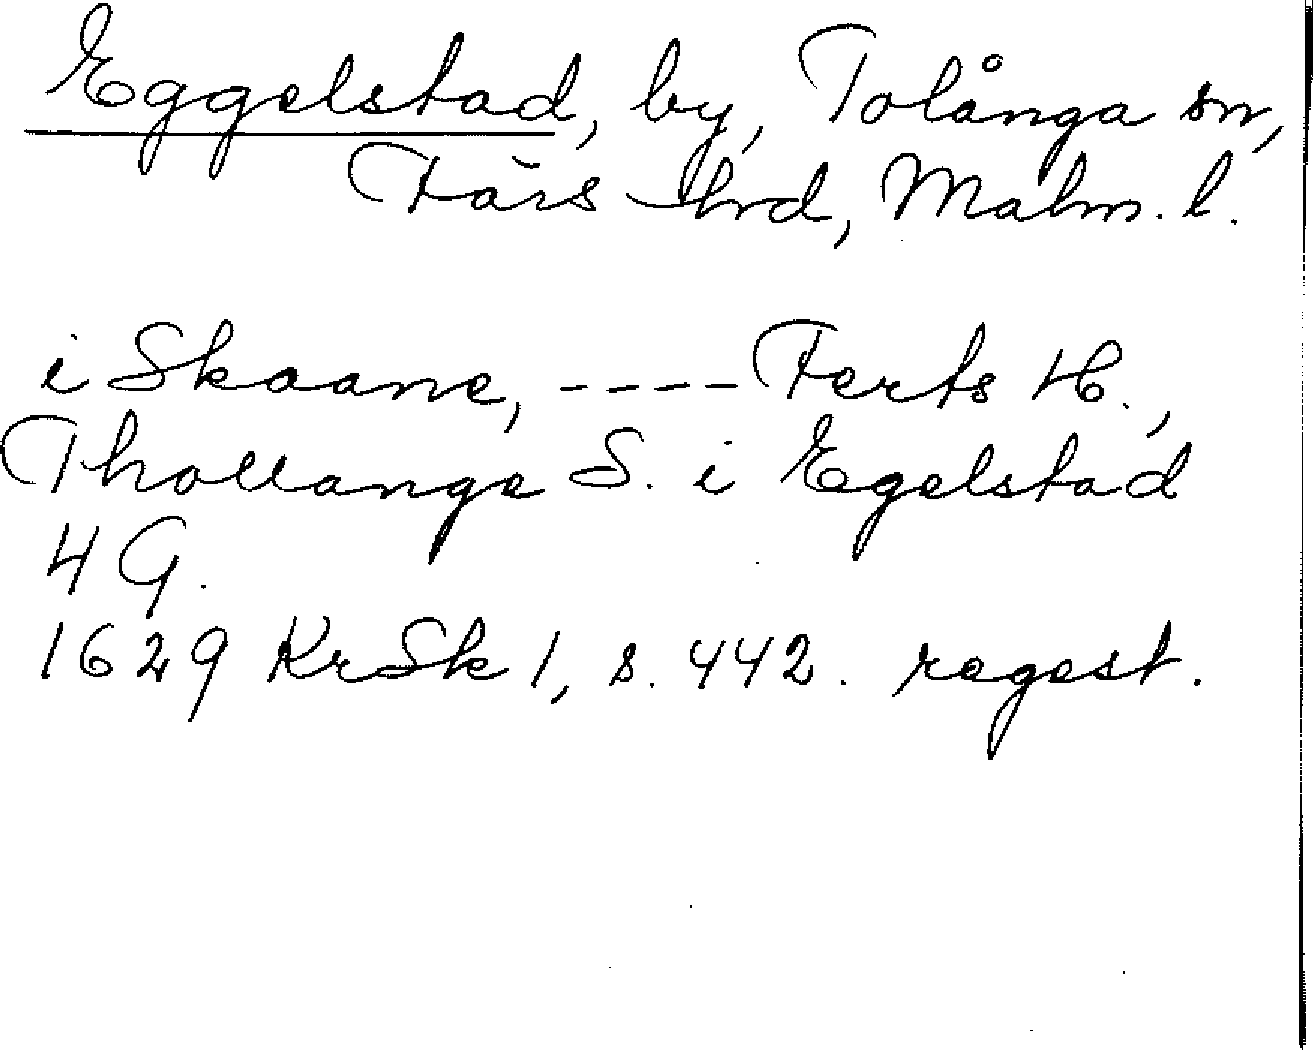 Eggelstad, by, Tolånga sn,
Färs hrd, Malm. l.
i Skaane, ---- Ferts H.,
Thollange S. i Egelstad
4 G.
1629 KrSk 1, s. 442. regest.